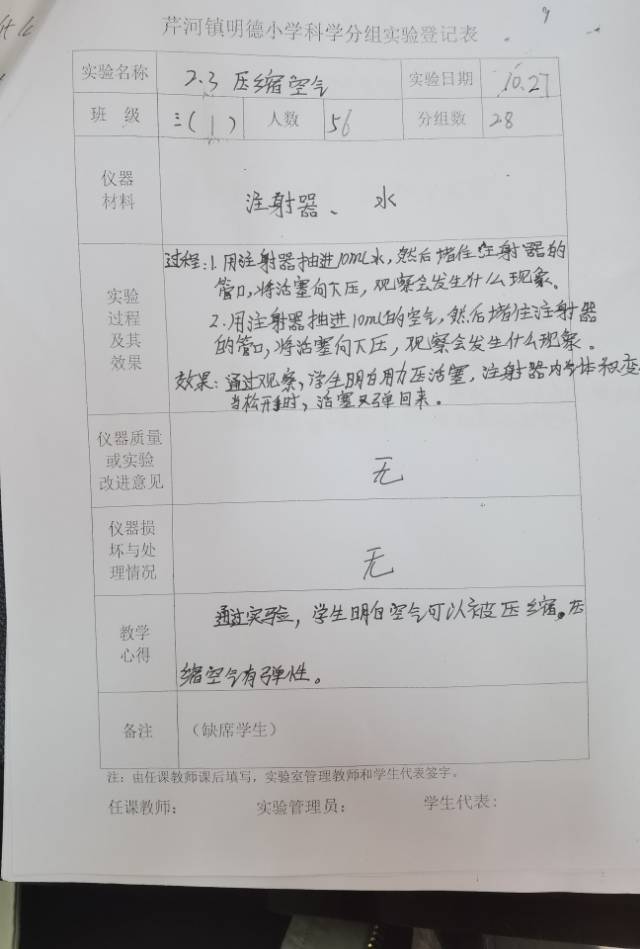 芹河镇明德小学科学分组实验登记表
实验名称 2.3 压缩空气 实验日期 10.27
班 级 三(1) 人数 56 分组数 28
仪器
材料
注射器、 水
实验
过程
及其
效果
过程:1.用注射器抽进10mL水,然后堵住注射器的
管口,将活塞向下压,观察会发生什么现象。
2.用注射器抽进10mL的空气,然后堵住注射器
的管口,将活塞向下压,观察会发生什么现象。
效果:通过观察,学生明白用力压活塞,注射器内气体积变
当松手时,活塞又弹回来。
仪器质量
或实验
改进意见
无
仪器损
坏与处
理情况
无
教学
心得
通过实验,学生明白空气可以被压缩。压
缩空气有弹性。
备注 (缺席学生)
注:由任课教师课后填写,实验室管理教师和学生代表签字。
任课教师: 实验管理员: 学生代表: